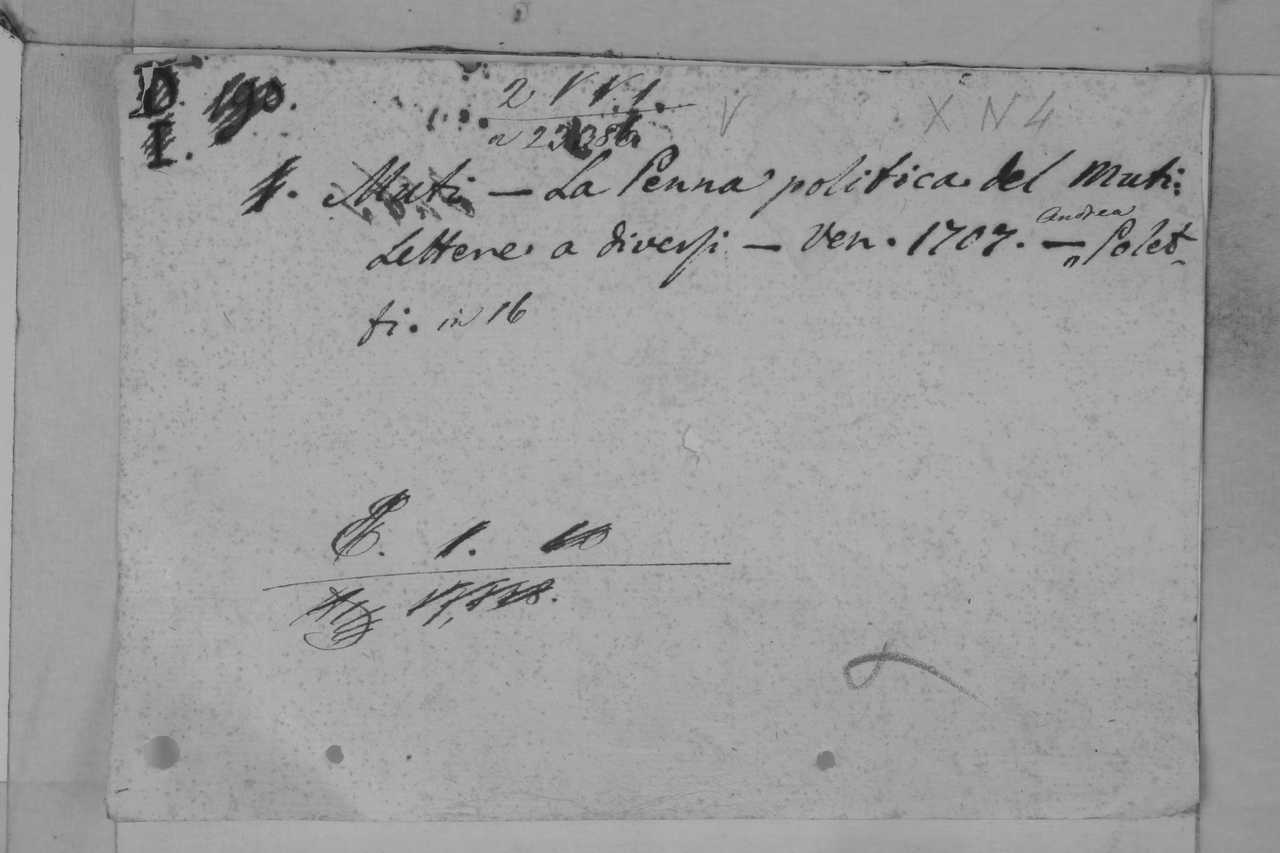 D. 190.
I.
2 V V. 1.
V X N 4
1. Muti — La Penna politica del Muti:
Lettere a diversi — Ven. 1707. — Andrea Polet-
ti. in 16
1. 10